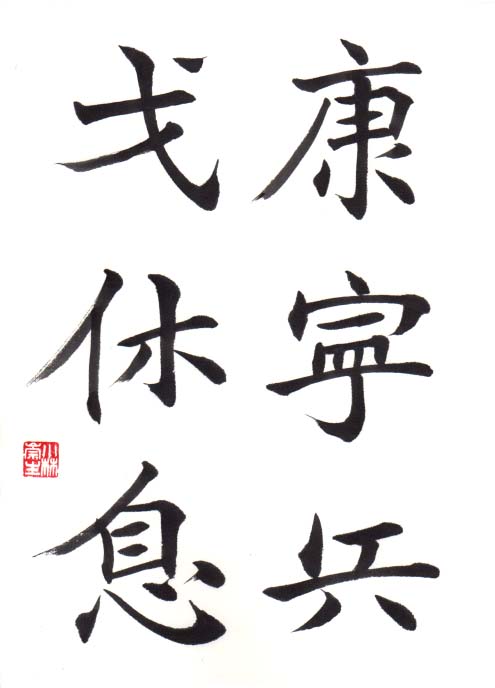 康寧兵
戈休息
小林